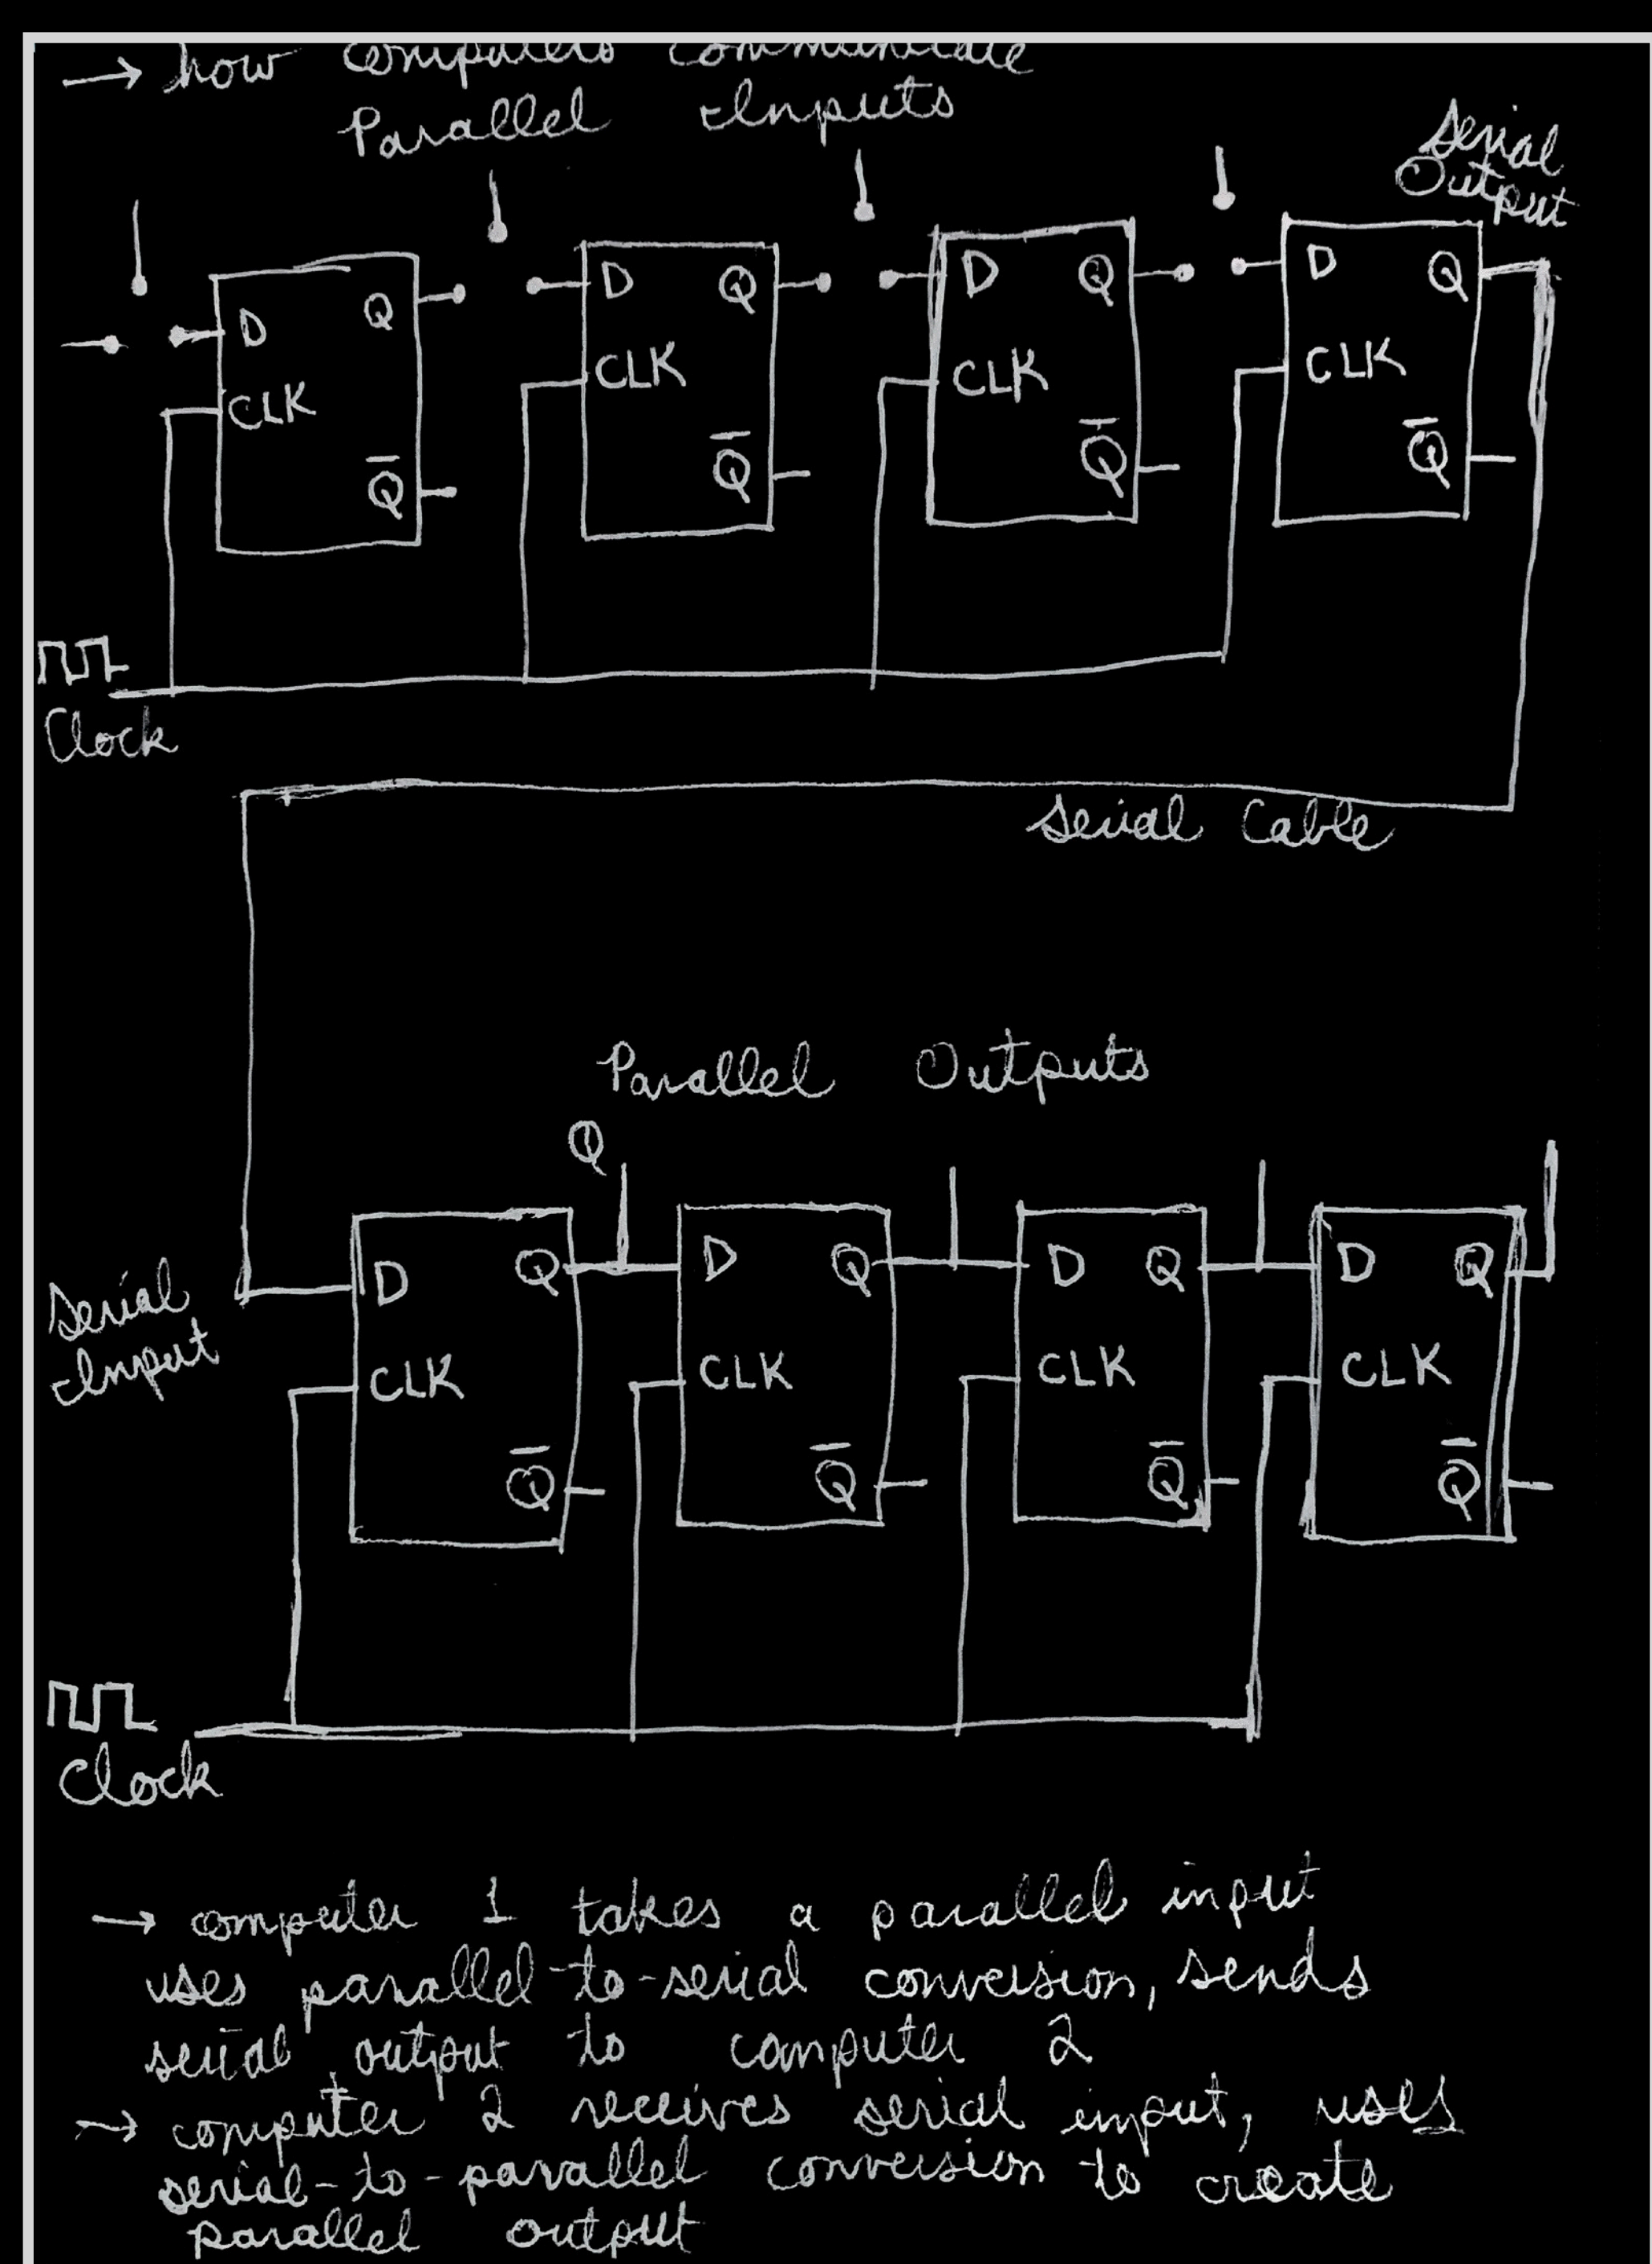 → how computers communicate
Parallel Inputs
Serial
Output
D Q D Q D Q D Q
CLK CLK CLK CLK
Q̅ Q̅ Q̅ Q̅
Clock
Serial Cable
Parallel Outputs
Q
D Q D Q D Q D Q
Serial
Input
CLK CLK CLK CLK
Q̅ Q̅ Q̅ Q̅
Clock
→ computer 1 takes a parallel input
uses parallel-to-serial conversion, sends
serial output to computer 2
→ computer 2 receives serial input, uses
serial-to-parallel conversion to create
parallel output